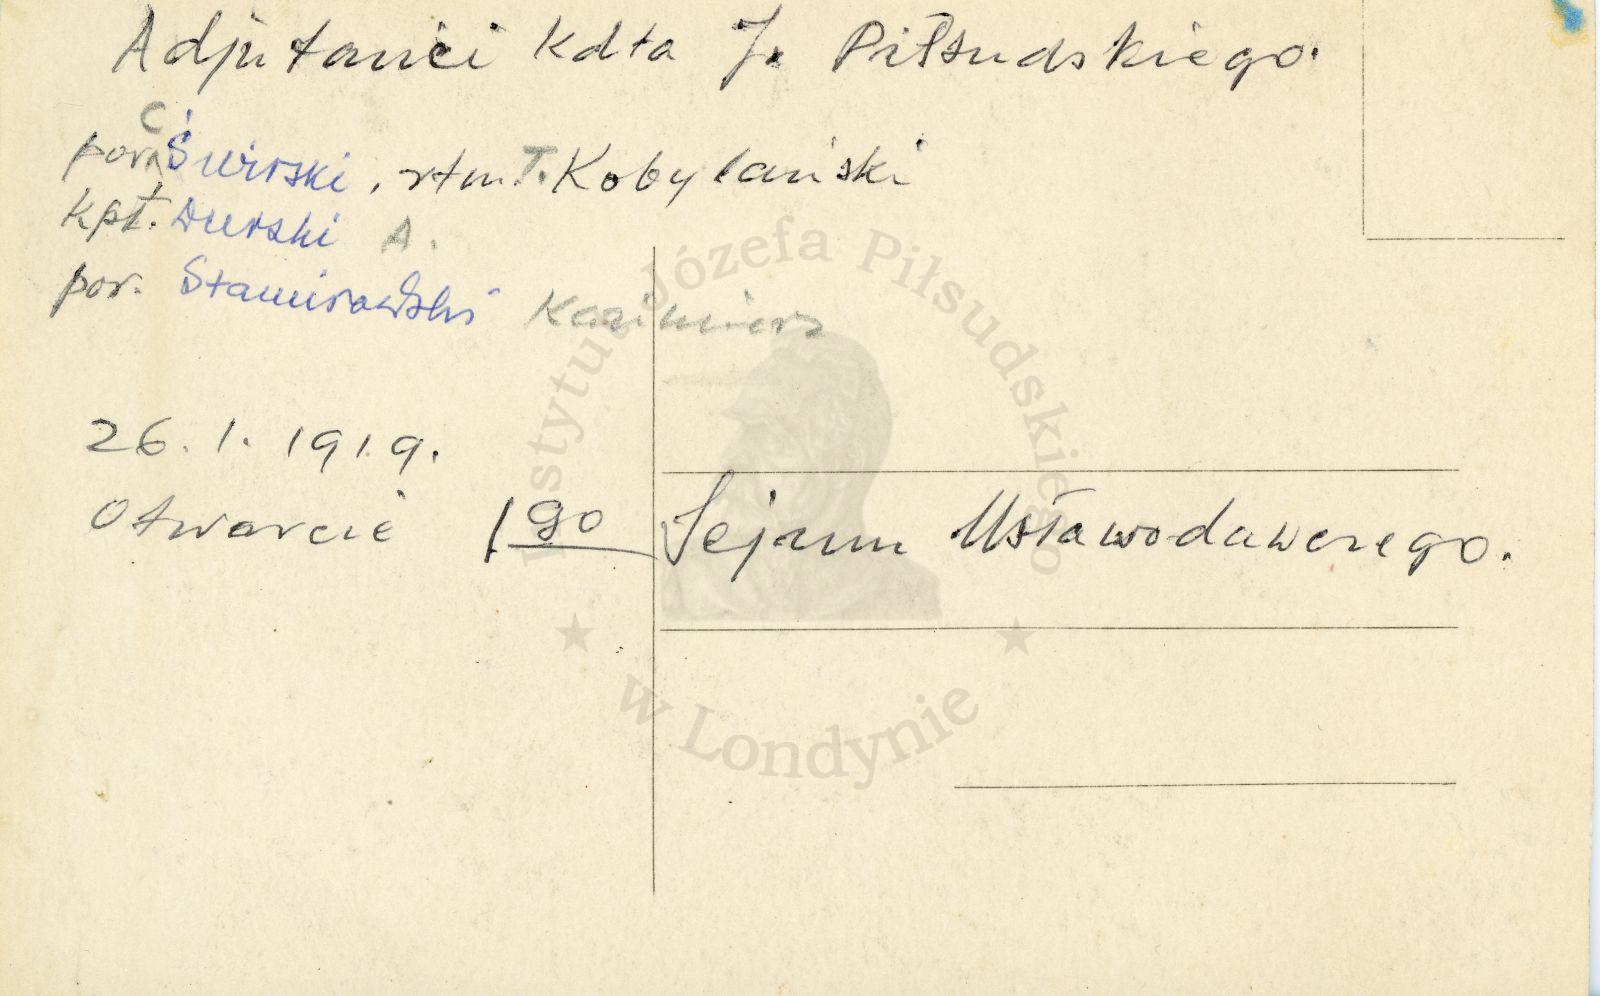 Adjutanci Kdta J. Piłsudskiego.
por. C Świrski, rtm. T. Kobylański
Kpt. Durski A.
por. Stamirowski Kazimierz
26. 1. 1919.
Otwarcie 1go Sejmu Ustawodawczego.
Instytut Józefa Piłsudskiego
w Londynie